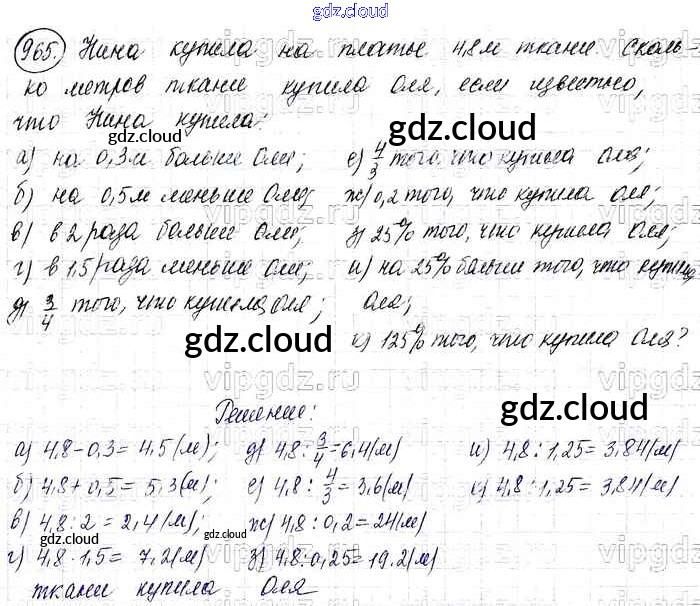 gdz.cloud
965. Нина купила на платье 4,8м ткани. Сколь-
ко метров ткани купила Оля, если известно,
что Нина купила:
gdz.cloud gdz.cloud
а) на 0,3м больше Оли;
б) на 0,5м меньше Оли;
в) в 2 раза больше Оли;
г) в 1,5 раза меньше Оли;
д) 3/4 того, что купила Оля;
е) 4/3 того, что купила Оля;
ж) 0,2 того, что купила Оля;
з) 25% того, что купила Оля;
и) на 25% больше того, что купила
Оля;
к) 125% того, что купила Оля?
gdz.cloud gdz.cloud
vipgdz.ru
Решение:
а) 4,8-0,3= 4,5(м);
б) 4,8+0,5= 5,3(м);
в) 4,8:2=2,4(м);
г) 4,8·1,5= 7,2(м)
д) 4,8:3/4=6,4(м)
е) 4,8:4/3=3,6(м)
ж) 4,8:0,2=24(м)
з) 4,8:0,25=19,2(м)
и) 4,8:1,25=3,84(м)
к) 4,8:1,25=3,84(м)
ткани купила Оля
gdz.cloud gdz.cloud gdz.cloud